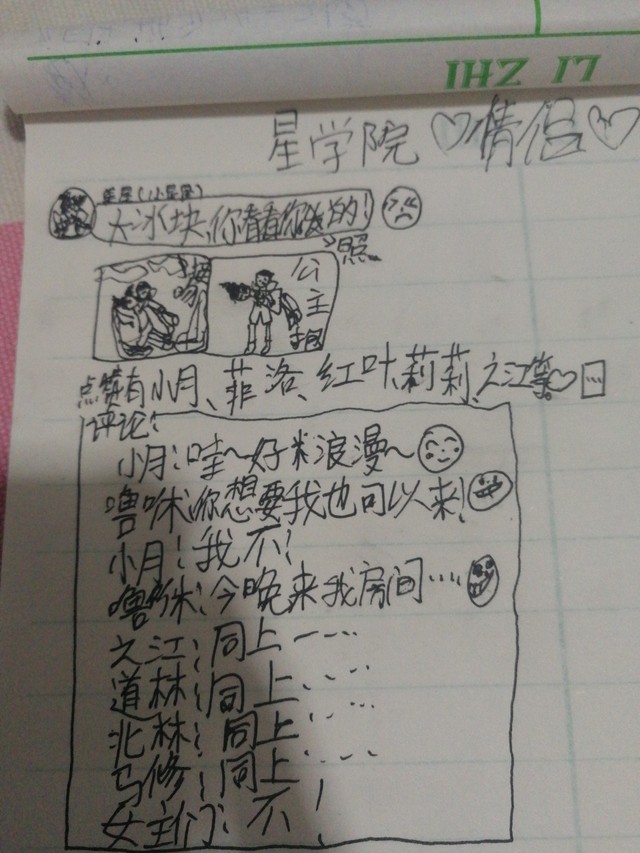 IHZ 17
星学院♡情侣♡
星星(小星星)
大冰块,你看看你发的!
照
公主抱
点赞有小月、菲洛、红叶、莉莉、之江等♡
评论:
小月:哇~好米浪漫~
噜咻:你想要我也可以来!
小月:我不!
噜咻:今晚来我房间····
之江:同上····
道林:同上、····
北林:同上·····
马修:同上····
女主们:不!